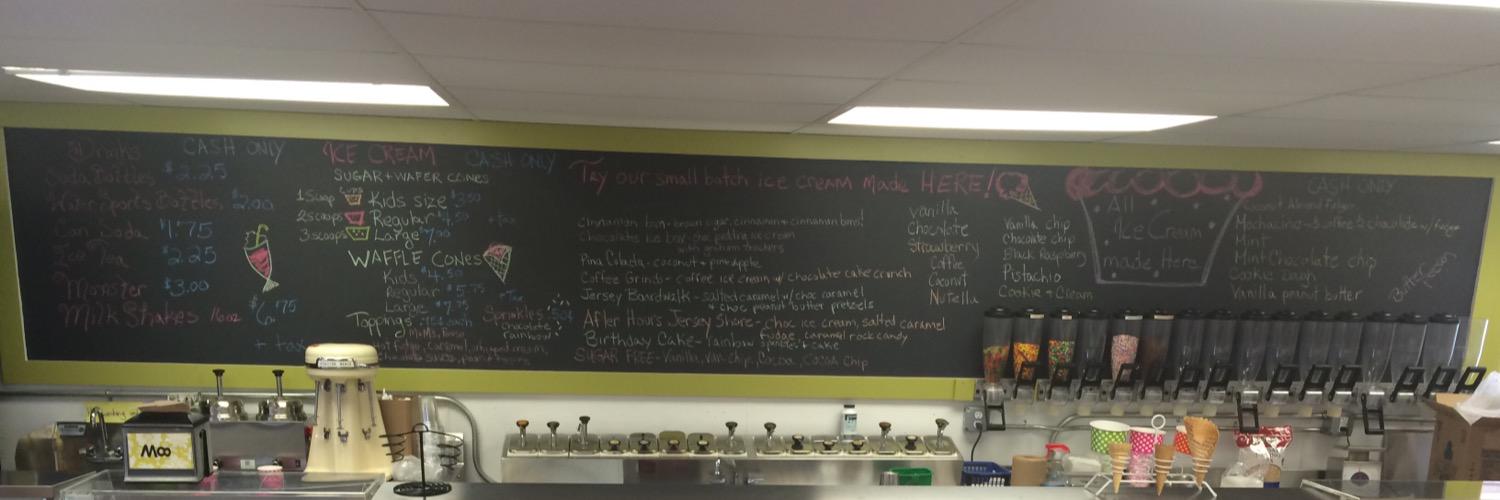 Drinks
CASH ONLY
Soda Bottles $2.25
Water Sports Bottles $2.00
Can Soda $1.75
Ice Tea $2.25
Monster $3.00
Milk Shakes 16oz $6.75
+ tax
ICE CREAM
CASH ONLY
SUGAR + WAFER CONES
CUPS
1 Scoop Kids size $3.50
2 scoops Regular $4.50 + tax
3 scoops Large $7.00
WAFFLE CONES
Kids $4.50
Regular $5.75
Large $7.75 + Tax
Toppings each
Sprinkles 50¢
chocolate
rainbow
Try our small batch ice cream made HERE!
Cinnamon bun - brown sugar, cinnamon + cinnamon buns!
Chocolate ice box - choc pudding ice cream
with graham crackers
Pina Colada - coconut + pineapple
Coffee Grinds - coffee ice cream w/ chocolate cake crunch
Jersey Boardwalk - salted caramel w/ choc caramel
+ choc peanut butter pretzels
After Hours Jersey Shore - choc ice cream, salted caramel
fudge, caramel rock candy
Birthday Cake - rainbow sprinkles + cake
SUGAR FREE - Vanilla, Van. chip, Cocoa, Cocoa Chip
Vanilla
Chocolate
Strawberry
Coffee
Coconut
Nutella
Vanilla chip
Chocolate chip
Black Raspberry
Pistachio
Cookie + Cream
All
Ice Cream
made Here
CASH ONLY
Coconut Almond Fudge
Mochachino - coffee & chocolate w/ fudge
Mint
Mint Chocolate chip
Cookie Dough
Vanilla peanut butter
Butter Pecan
Moo